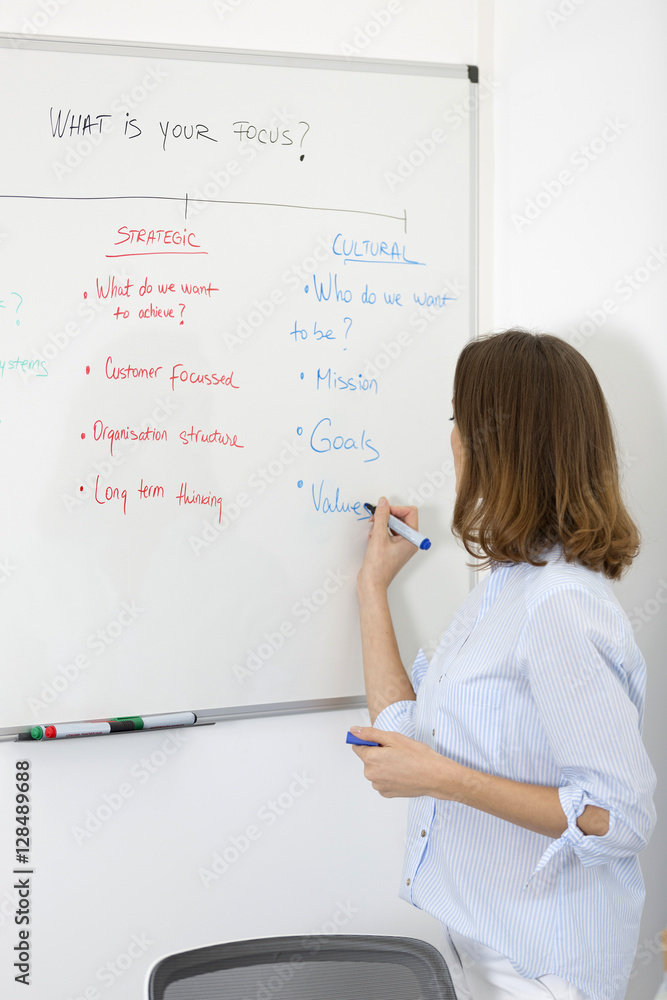 WHAT IS YOUR FOCUS?
?
ystems
STRATEGIC
• What do we want
to achieve?
• Customer focussed
• Organisation structure
• Long term thinking
CULTURAL
• Who do we want
to be?
• Mission
• Goals
• Values
Adobe Stock | #128489688